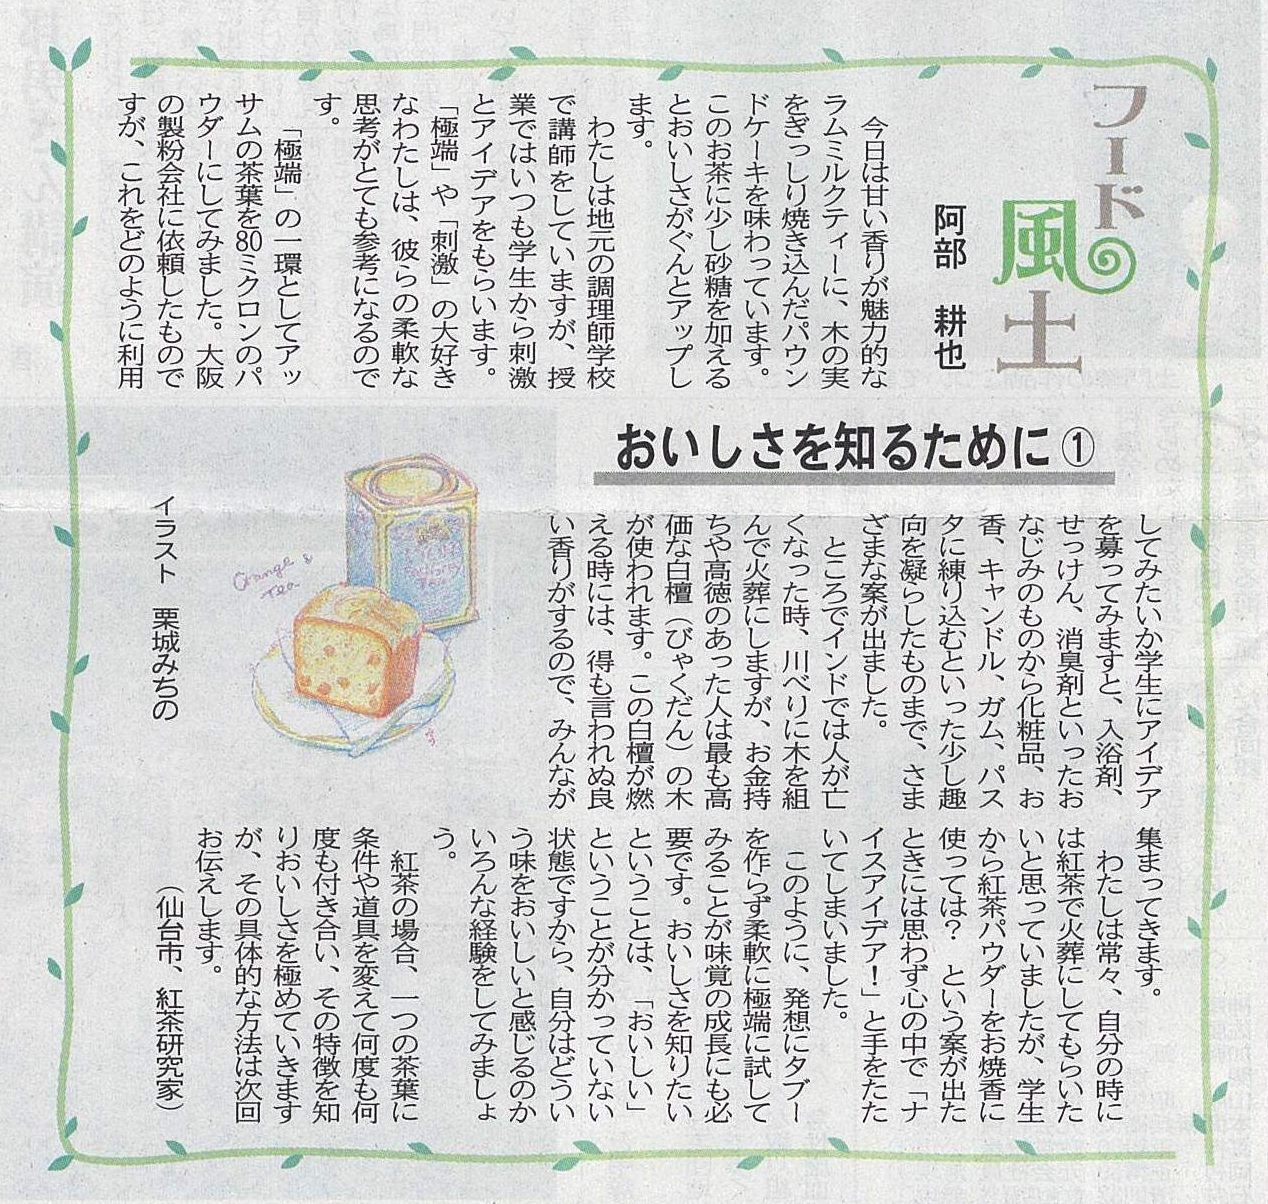 フード風土
阿部　耕也
おいしさを知るために①
今日は甘い香りが魅力的な
ラムミルクティーに、木の実
をぎっしり焼き込んだパウン
ドケーキを味わっています。
このお茶に少し砂糖を加える
とおいしさがぐんとアップし
ます。
わたしは地元の調理師学校
で講師をしていますが、授
業ではいつも学生から刺激
とアイデアをもらいます。
「極端」や「刺激」の大好き
なわたしは、彼らの柔軟な
思考がとても参考になるので
す。
「極端」の一環としてアッ
サムの茶葉を80ミクロンのパ
ウダーにしてみました。大阪
の製粉会社に依頼したもので
すが、これをどのように利用
してみたいか学生にアイデア
を募ってみますと、入浴剤、
せっけん、消臭剤といったお
なじみのものから化粧品、お
香、キャンドル、ガム、パス
タに練り込むといった少し趣
向を凝らしたものまで、さま
ざまな案が出ました。
ところでインドでは人が亡
くなった時、川べりに木を組
んで火葬にしますが、お金持
ちや高徳のあった人は最も高
価な白檀（びゃくだん）の木
が使われます。この白檀が燃
える時には、得も言われぬ良
い香りがするので、みんなが
集まってきます。
わたしは常々、自分の時に
は紅茶で火葬にしてもらいた
いと思っていましたが、学生
から紅茶パウダーをお焼香に
使っては？　という案が出た
ときには思わず心の中で「ナ
イスアイデア！」と手をたた
いてしまいました。
このように、発想にタブー
を作らず柔軟に極端に試して
みることが味覚の成長にも必
要です。おいしさを知りたい
ということは、「おいしい」
ということが分かっていない
状態ですから、自分はどうい
う味をおいしいと感じるのか
いろんな経験をしてみましょ
う。
紅茶の場合、一つの茶葉に
条件や道具を変えて何度も何
度も付き合い、その特徴を知
りおいしさを極めていきます
が、その具体的な方法は次回
お伝えします。
（仙台市、紅茶研究家）
Orange &
Tea
イラスト　栗城みちの